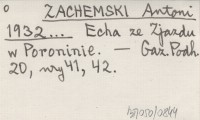 o ZACHEMSKI Antoni
1932... Echa ze Zjazdu
w Poroninie. — Gaz. Podh
20, nry 41, 42.